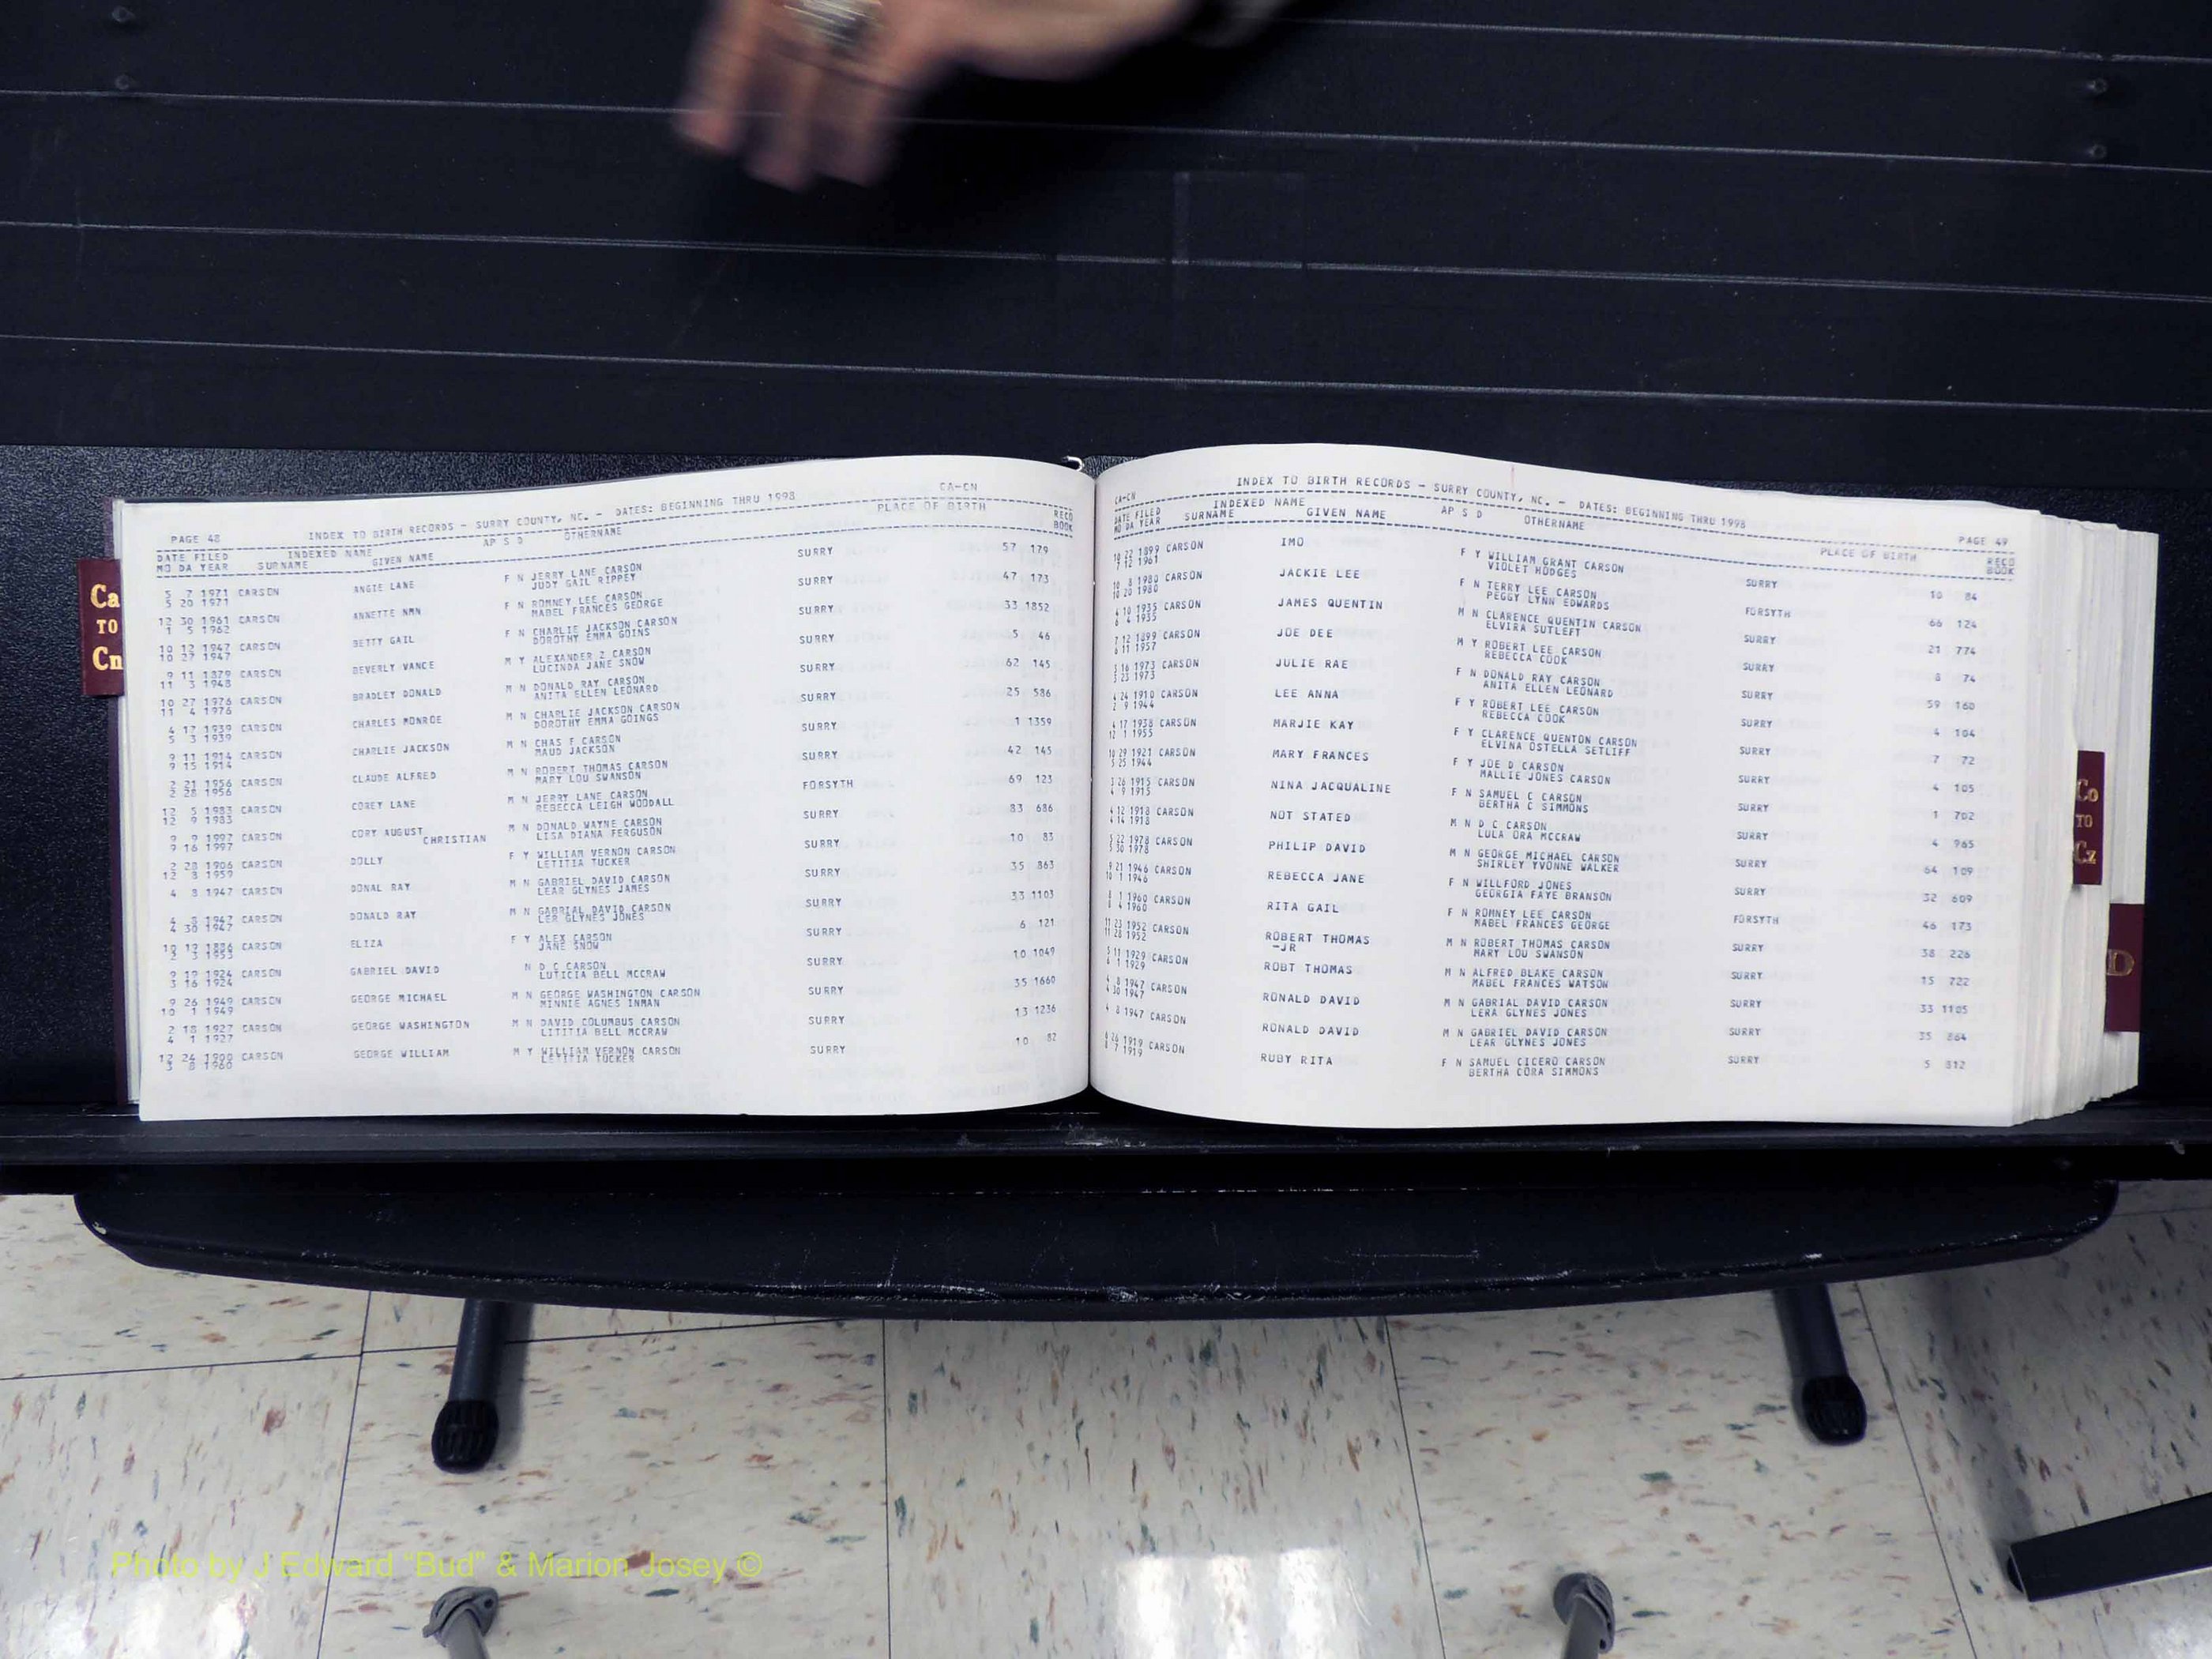 Ca
TO
Cn
PAGE 48 INDEX TO BIRTH RECORDS - SURRY COUNTY, NC. - DATES: BEGINNING THRU 1998 CA-CN
DATE FILED INDEXED NAME AP S D OTHERNAME PLACE OF BIRTH RECO
MO DA YEAR SURNAME GIVEN NAME BOOK
5 7 1971 CARSON ANGIE LANE F N JERRY LANE CARSON SURRY 57 179
5 20 1971 JUDY GAIL RIPPEY
12 30 1961 CARSON ANNETTE NMN F N ROMNEY LEE CARSON SURRY 47 173
1 5 1962 MABEL FRANCES GEORGE
10 12 1947 CARSON BETTY GAIL F N CHARLIE JACKSON CARSON SURRY 33 1852
10 27 1947 DOROTHY EMMA GOINS
9 11 1879 CARSON BEVERLY VANCE M Y ALEXANDER Z CARSON SURRY 5 46
11 3 1948 LUCINDA JANE SNOW
10 27 1976 CARSON BRADLEY DONALD M N DONALD RAY CARSON SURRY 62 145
11 4 1976 ANITA ELLEN LEONARD
4 17 1939 CARSON CHARLES MONROE M N CHARLIE JACKSON CARSON SURRY 25 586
5 3 1939 DOROTHY EMMA GOINGS
9 11 1914 CARSON CHARLIE JACKSON M N CHAS F CARSON SURRY 1 1359
9 15 1914 MAUD JACKSON
2 21 1956 CARSON CLAUDE ALFRED M N ROBERT THOMAS CARSON SURRY 42 145
2 28 1956 MARY LOU SWANSON
12 5 1983 CARSON COREY LANE M N JERRY LANE CARSON FORSYTH 69 123
12 9 1983 REBECCA LEIGH WOODALL
9 9 1997 CARSON CORY AUGUST M N DONALD WAYNE CARSON SURRY 83 686
9 16 1997 CHRISTIAN LISA DIANA FERGUSON
2 28 1906 CARSON DOLLY F Y WILLIAM VERNON CARSON SURRY 10 83
12 8 1959 LETITIA TUCKER
4 8 1947 CARSON DONAL RAY M N GABRIEL DAVID CARSON SURRY 35 863
LEAR GLYNES JAMES
4 8 1947 CARSON DONALD RAY M N GABRIAL DAVID CARSON SURRY 33 1103
4 30 1947 LER GLYNES JONES
10 19 1886 CARSON ELIZA F Y ALEX CARSON SURRY 6 121
2 3 1953 JANE SNOW
2 19 1924 CARSON GABRIEL DAVID N D C CARSON SURRY 10 1049
3 16 1924 LUTICIA BELL MCCRAW
9 26 1949 CARSON GEORGE MICHAEL M N GEORGE WASHINGTON CARSON SURRY 35 1660
10 1 1949 MINNIE AGNES INMAN
2 18 1927 CARSON GEORGE WASHINGTON M N DAVID COLUMBUS CARSON SURRY 13 1236
4 1 1927 LITITIA BELL MCCRAW
12 24 1900 CARSON GEORGE WILLIAM M Y WILLIAM VERNON CARSON SURRY 10 82
3 8 1960 LETITIA TUCKER
CA-CN INDEX TO BIRTH RECORDS - SURRY COUNTY, NC. - DATES: BEGINNING THRU 1998 PAGE 49
DATE FILED INDEXED NAME AP S D OTHERNAME PLACE OF BIRTH RECO
MO DA YEAR SURNAME GIVEN NAME BOOK
10 22 1899 CARSON IMO F Y WILLIAM GRANT CARSON SURRY 10 84
7 12 1961 VIOLET HODGES
10 8 1980 CARSON JACKIE LEE F N TERRY LEE CARSON FORSYTH 66 124
10 20 1980 PEGGY LYNN EDWARDS
4 10 1935 CARSON JAMES QUENTIN M N CLARENCE QUENTIN CARSON SURRY 21 774
6 4 1935 ELVIRA SUTLEFT
7 12 1899 CARSON JOE DEE M Y ROBERT LEE CARSON SURRY 8 74
6 11 1957 REBECCA COOK
3 16 1973 CARSON JULIE RAE F N DONALD RAY CARSON SURRY 59 160
3 23 1973 ANITA ELLEN LEONARD
4 24 1910 CARSON LEE ANNA F Y ROBERT LEE CARSON SURRY 4 104
2 9 1944 REBECCA COOK
4 17 1938 CARSON MARJIE KAY F Y CLARENCE QUENTON CARSON SURRY 7 72
12 1 1955 ELVINA OSTELLA SETLIFF
10 29 1921 CARSON MARY FRANCES F Y JOE D CARSON SURRY 4 105
5 25 1944 MALLIE JONES CARSON
3 26 1915 CARSON NINA JACQUALINE F N SAMUEL C CARSON SURRY 1 702
4 9 1915 BERTHA C SIMMONS
4 12 1918 CARSON NOT STATED M N D C CARSON SURRY 4 965
4 14 1918 LULA ORA MCCRAW
5 22 1978 CARSON PHILIP DAVID M N GEORGE MICHAEL CARSON SURRY 64 109
5 30 1978 SHIRLEY YVONNE WALKER
9 21 1946 CARSON REBECCA JANE F N WILLFORD JONES SURRY 32 609
10 1 1946 GEORGIA FAYE BRANSON
8 1 1960 CARSON RITA GAIL F N ROMNEY LEE CARSON FORSYTH 46 173
8 4 1960 MABEL FRANCES GEORGE
11 23 1952 CARSON ROBERT THOMAS M N ROBERT THOMAS CARSON SURRY 38 226
11 28 1952 -JR MARY LOU SWANSON
5 11 1929 CARSON ROBT THOMAS M N ALFRED BLAKE CARSON SURRY 15 722
6 1 1929 MABEL FRANCES WATSON
4 8 1947 CARSON RONALD DAVID M N GABRIAL DAVID CARSON SURRY 33 1105
4 30 1947 LERA GLYNES JONES
4 8 1947 CARSON RONALD DAVID M N GABRIEL DAVID CARSON SURRY 35 864
LEAR GLYNES JONES
6 26 1919 CARSON RUBY RITA F N SAMUEL CICERO CARSON SURRY 5 812
8 7 1919 BERTHA CORA SIMMONS
Co
TO
Cz
D
Photo by J Edward "Bud" & Marion Josey ©